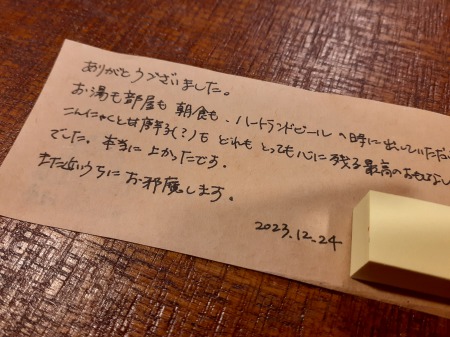 ありがとうございました。
お湯も部屋も朝食も、ハートランドビールの時に出していただいた
こんにゃくと唐芋(?)も どれも とっても心に残る最高のおもてなし
でした。本当に よかったです。
また近いうちに お邪魔します。
2023.12.24